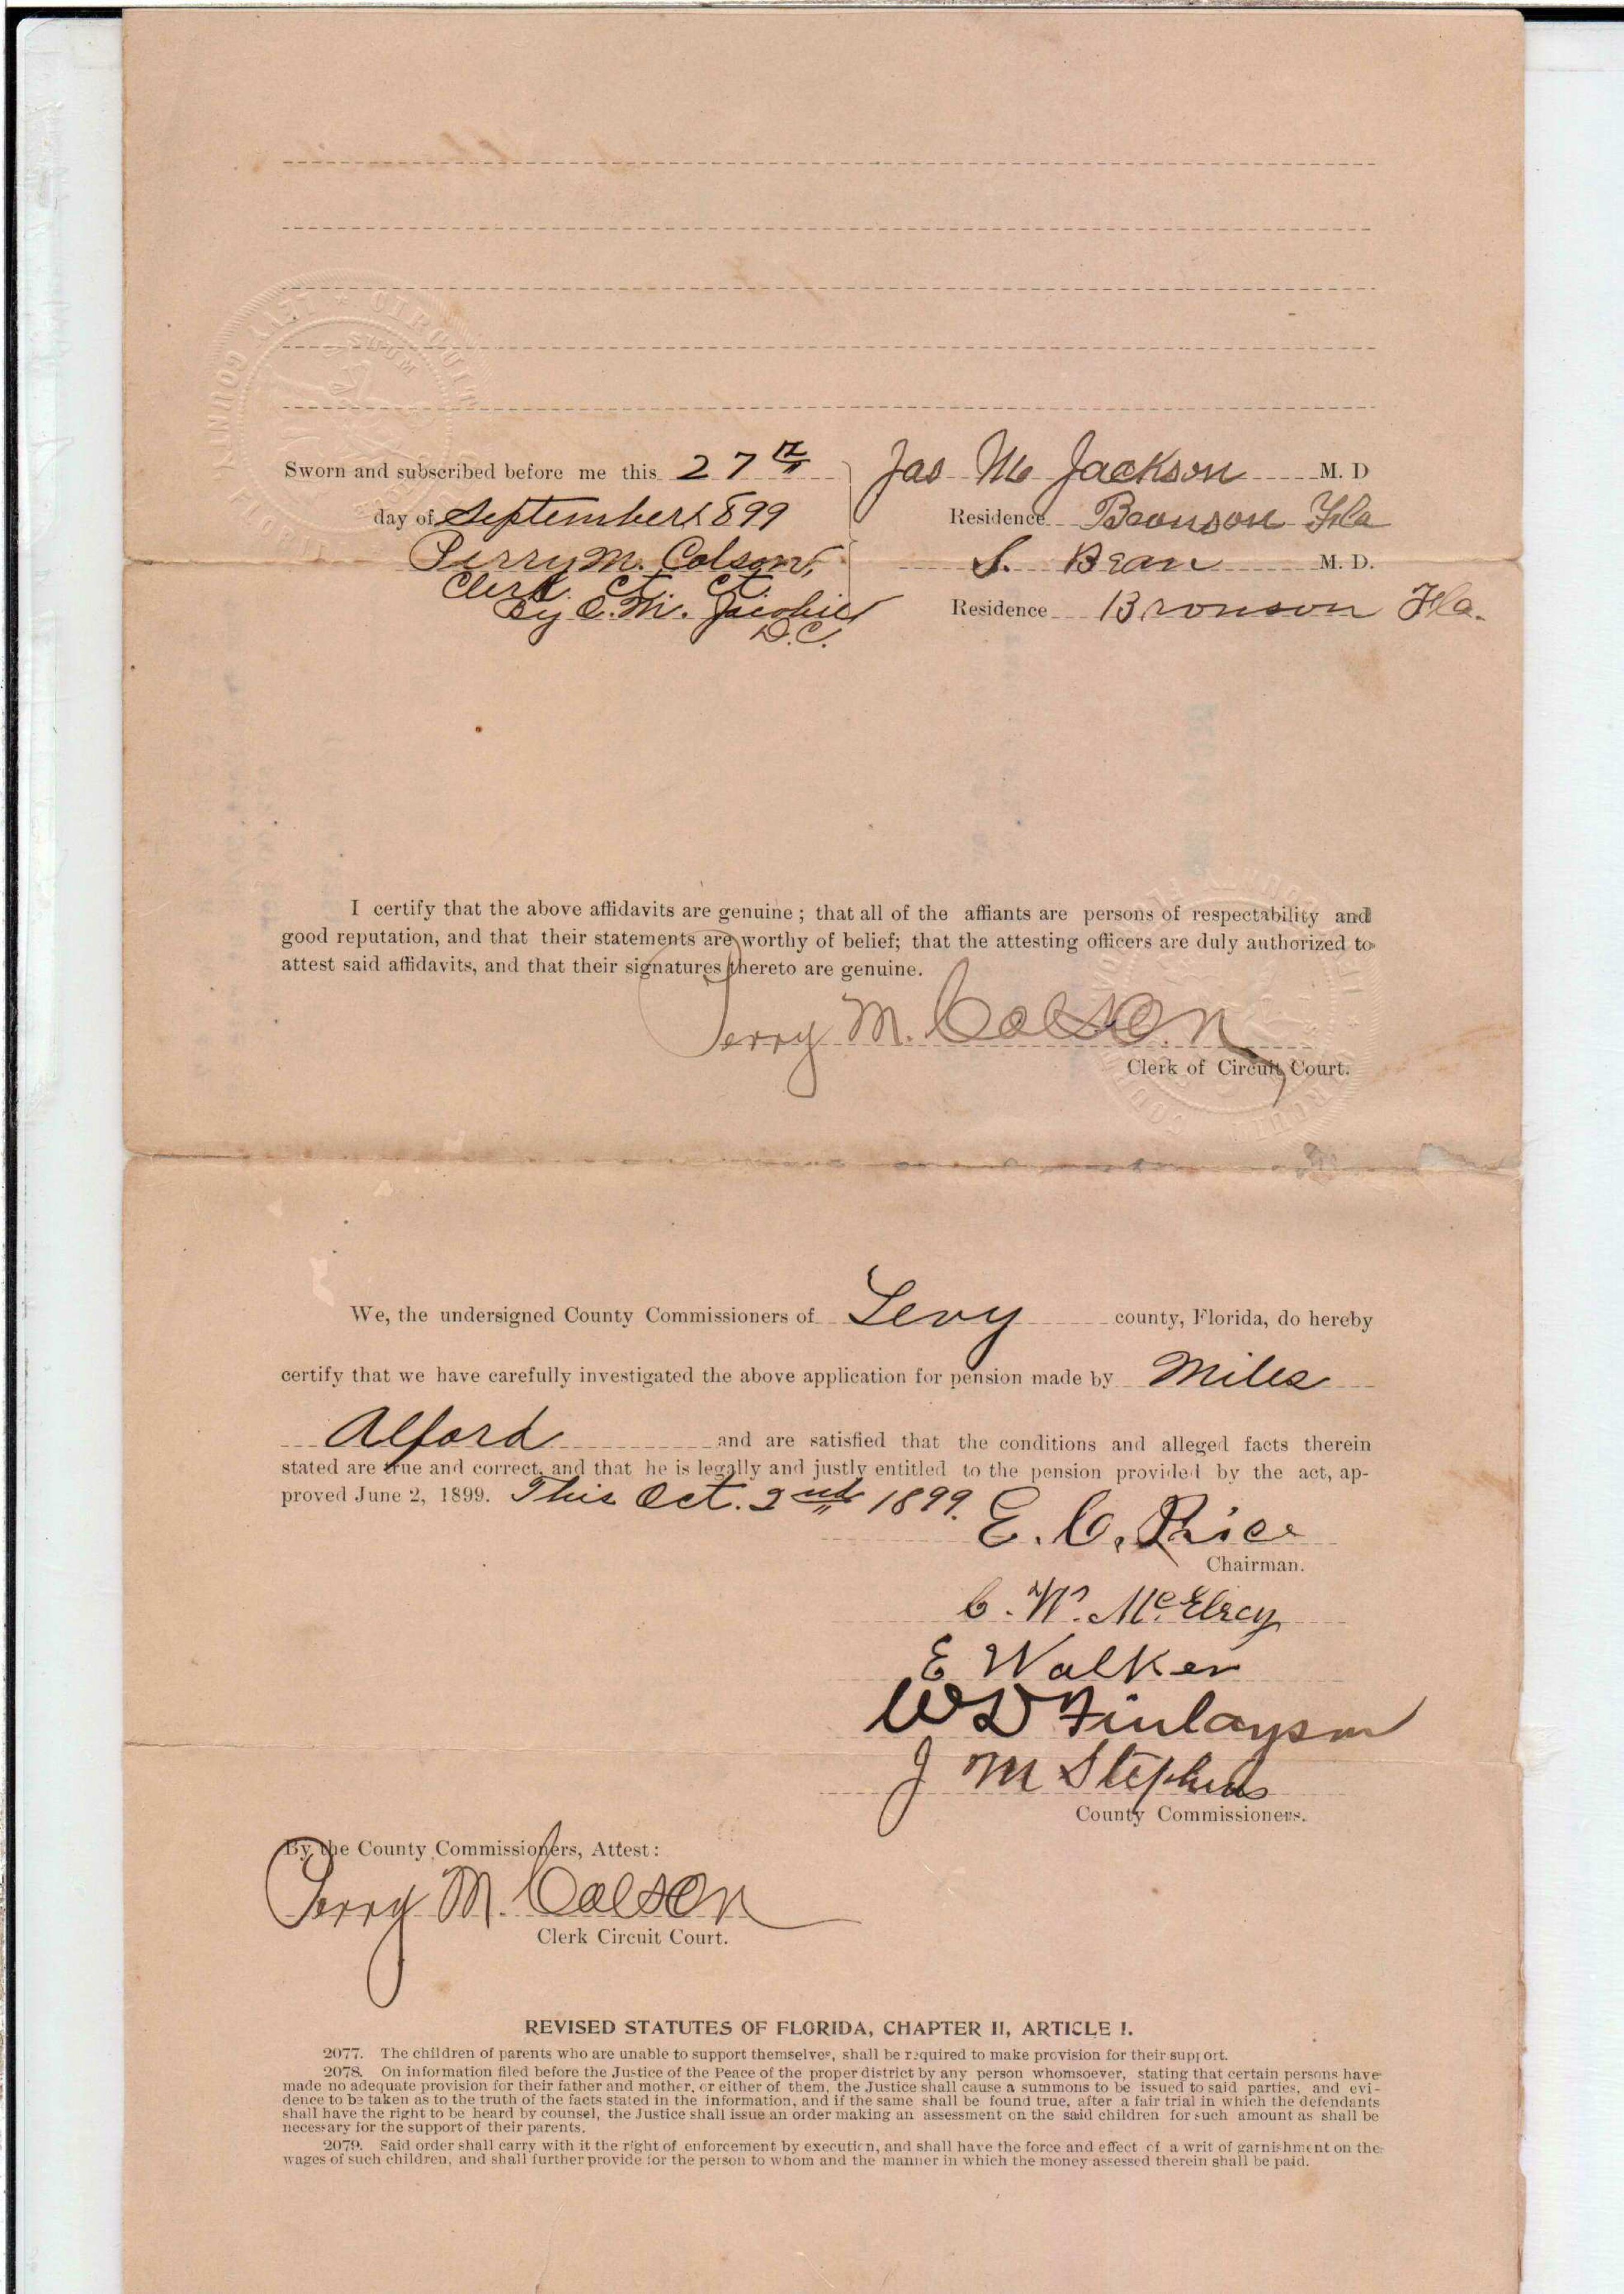 CIRCUIT
LEVY COUNTY
FLORIDA
Sworn and subscribed before me this 27th
day of September 1899
Perry M. Colson,
Clerk Ct. Ct.
By C. M. D.C.
Jas M Jackson M. D
Residence Bronson Fla
S. Bean M. D.
Residence Bronson Fla.
I certify that the above affidavits are genuine; that all of the affiants are persons of respectability and
good reputation, and that their statements are worthy of belief; that the attesting officers are duly authorized to
attest said affidavits, and that their signatures thereto are genuine.
Perry M. Colson
Clerk of Circuit Court.
We, the undersigned County Commissioners of Levy county, Florida, do hereby
certify that we have carefully investigated the above application for pension made by Miles
Alford and are satisfied that the conditions and alleged facts therein
stated are true and correct, and that he is legally and justly entitled to the pension provided by the act, ap-
proved June 2, 1899. This Oct. 2nd 1899.
E. C. Rice
Chairman.
C. W. McElrcy
E Walker
W D Finlayson
J M Stephens
County Commissioners.
By the County Commissioners, Attest:
Perry M. Colson
Clerk Circuit Court.
REVISED STATUTES OF FLORIDA, CHAPTER II, ARTICLE I.
2077. The children of parents who are unable to support themselves, shall be required to make provision for their support.
2078. On information filed before the Justice of the Peace of the proper district by any person whomsoever, stating that certain persons have
made no adequate provision for their father and mother, or either of them, the Justice shall cause a summons to be issued to said parties, and evi-
dence to be taken as to the truth of the facts stated in the information, and if the same shall be found true, after a fair trial in which the defendants
shall have the right to be heard by counsel, the Justice shall issue an order making an assessment on the said children for such amount as shall be
necessary for the support of their parents.
2079. Said order shall carry with it the right of enforcement by execution, and shall have the force and effect of a writ of garnishment on the
wages of such children, and shall further provide for the person to whom and the manner in which the money assessed therein shall be paid.